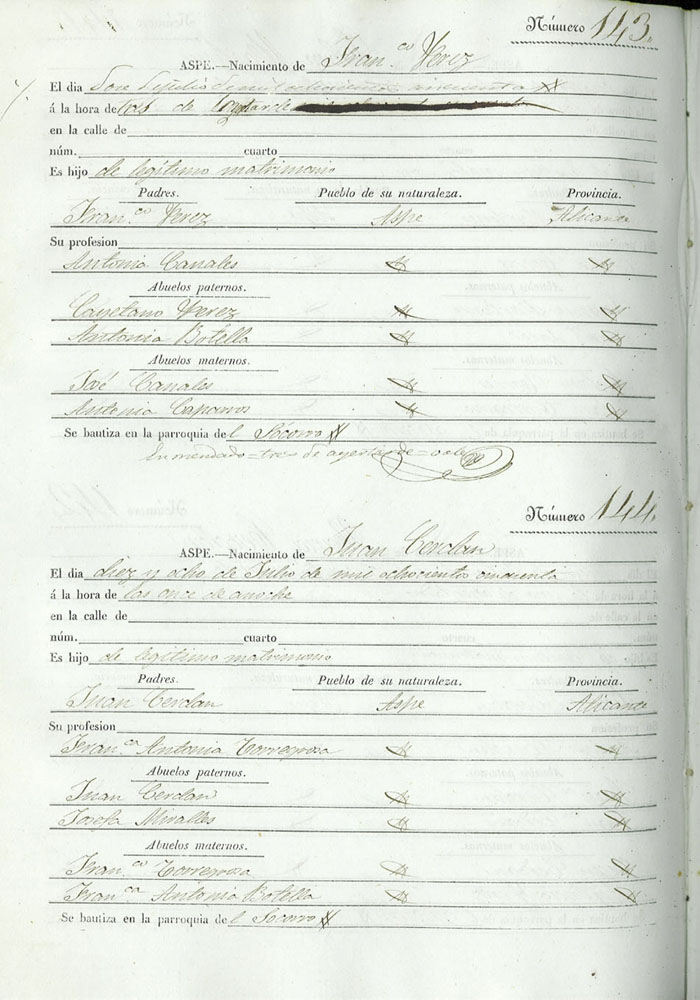 Número 143.
ASPE.—Nacimiento de Fran.co Verez
El dia Doce de Julio de mil ochocientos cincuenta
á la hora de tres de la tarde
en la calle de
núm. cuarto
Es hijo de legítimo matrimonio
Padres. Pueblo de su naturaleza. Provincia.
Fran.co Verez Aspe Alicante
Su profesion
Antonia Canales
Abuelos paternos.
Cayetano Verez
Antonia Botella
Abuelos maternos.
José Canales
Antonia Caparros
Se bautiza en la parroquia del Socorro
Enmendado = tres de ayer tarde = vale
Número 144.
ASPE.—Nacimiento de Juan Cerdan
El dia diez y ocho de Julio de mil ochocientos cincuenta
á la hora de las once de anoche
en la calle de
núm. cuarto
Es hijo de legítimo matrimonio
Padres. Pueblo de su naturaleza. Provincia.
Juan Cerdan Aspe Alicante
Su profesion
Fran.ca Antonia Torregrosa
Abuelos paternos.
Juan Cerdan
Josefa Miralles
Abuelos maternos.
Fran.co Torregrosa
Fran.ca Antonia Botella
Se bautiza en la parroquia del Socorro